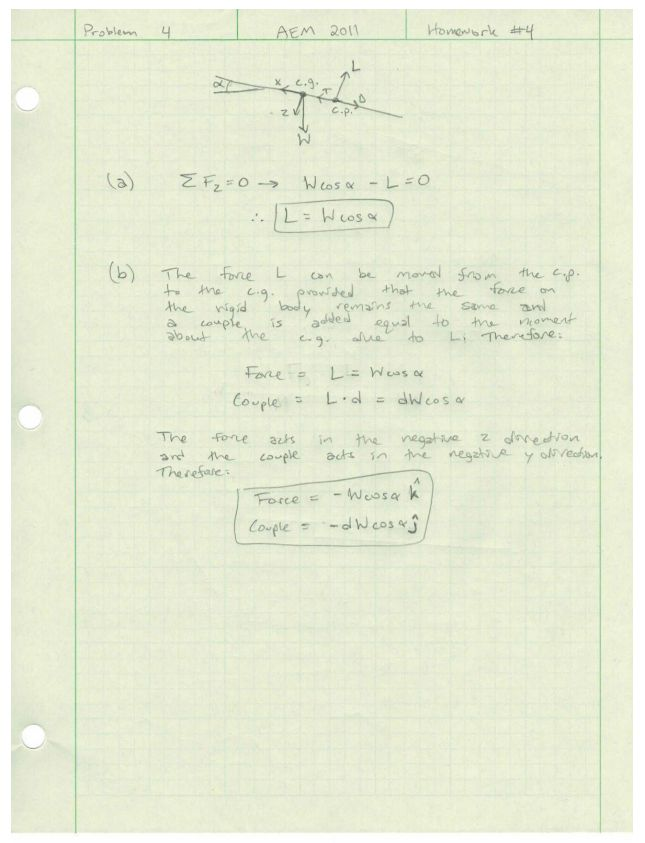 Problem 4 AEM 2011 Homework #4
L
α x c.g. τ D
z c.p.
W
(a) Σ F_z = 0 → W cos α - L = 0
∴ L = W cos α
(b) The force L can be moved from the c.p.
to the c.g. provided that the force on
the rigid body remains the same and
a couple is added equal to the moment
about the c.g. due to L; Therefore:
Force = L = W cos α
Couple = L · d = dW cos α
The force acts in the negative z direction
and the couple acts in the negative y direction.
Therefore:
Force = -W cos α k̂
Couple = -dW cos α ĵ